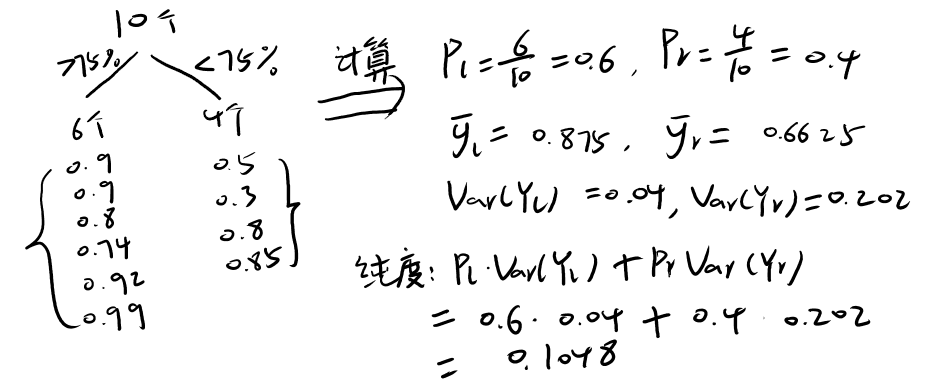 10个
>75% <75%
6个 4个
0.9 0.5
0.9 0.3
0.8 0.8
0.74 0.85
0.92
0.99
计算
P_l = 6/10 = 0.6, P_r = 4/10 = 0.4
ȳ_l = 0.875, ȳ_r = 0.6625
Var(Y_l) = 0.04, Var(Y_r) = 0.202
纯度: P_l·Var(Y_l) + P_r Var(Y_r)
= 0.6 · 0.04 + 0.4 · 0.202
= 0.1048